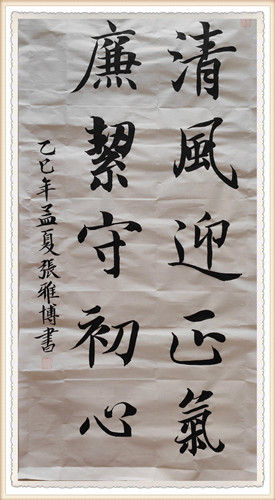 清風迎正氣
廉絜守初心
乙巳年孟夏張雅博書